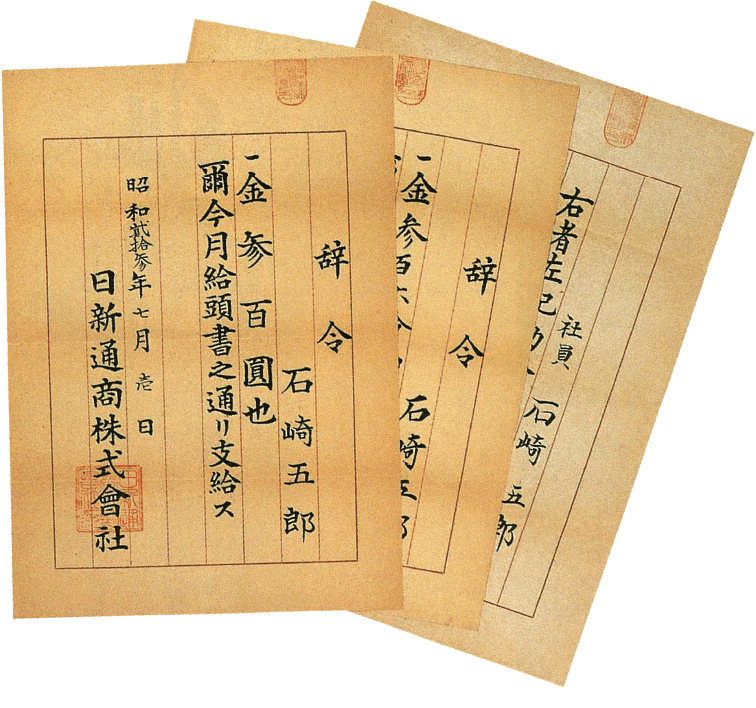 辞令
石崎五郎
一金参百圓也
爾今月給頭書之通リ支給ス
昭和貳拾参年七月壱日
日新通商株式會社
辞令
石崎五郎
一金参百六
社員
石崎五郎
右者左記